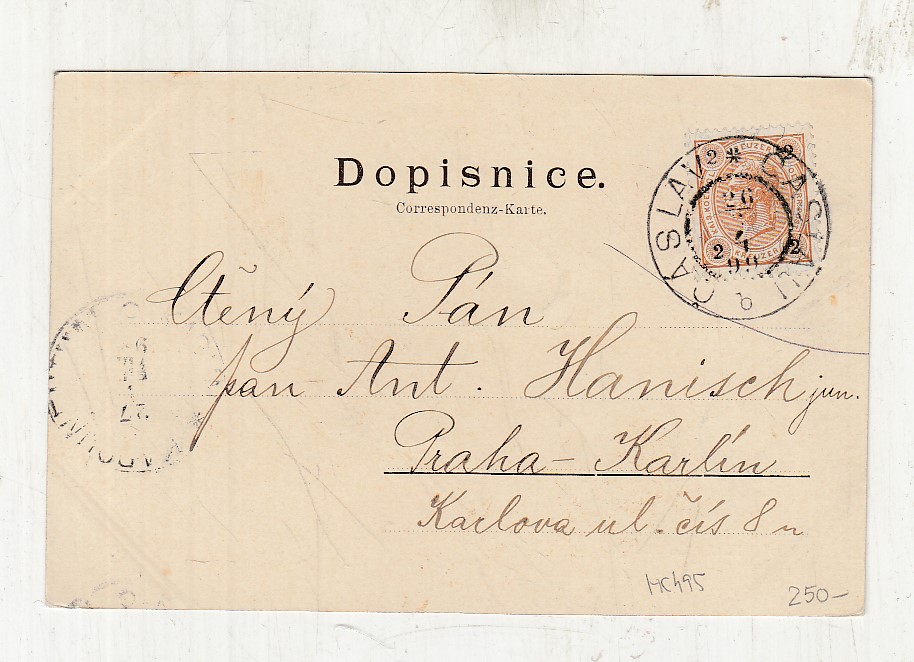 Dopisnice.
Correspondenz-Karte.
ČÁSLAV * ČASLAU b
26
99
2 KREUZER 2
2 KREUZER 2
Ctěný Pán
pan Ant. Hanisch jun.
Praha-Karlín
Karlova ul. čís 8 n
250-